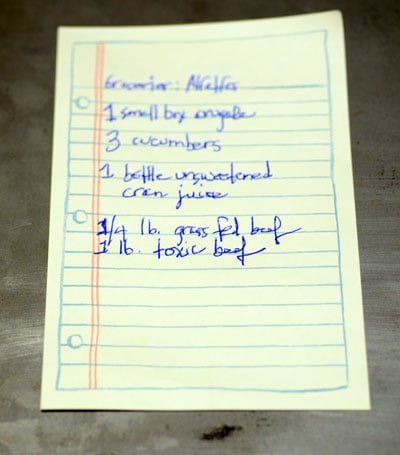 Groceries: Alfalfas
1 small box arugula
3 cucumbers
1 bottle unsweetened
cran juice
1/4 lb. grass fed beef
1 lb. toxic beef